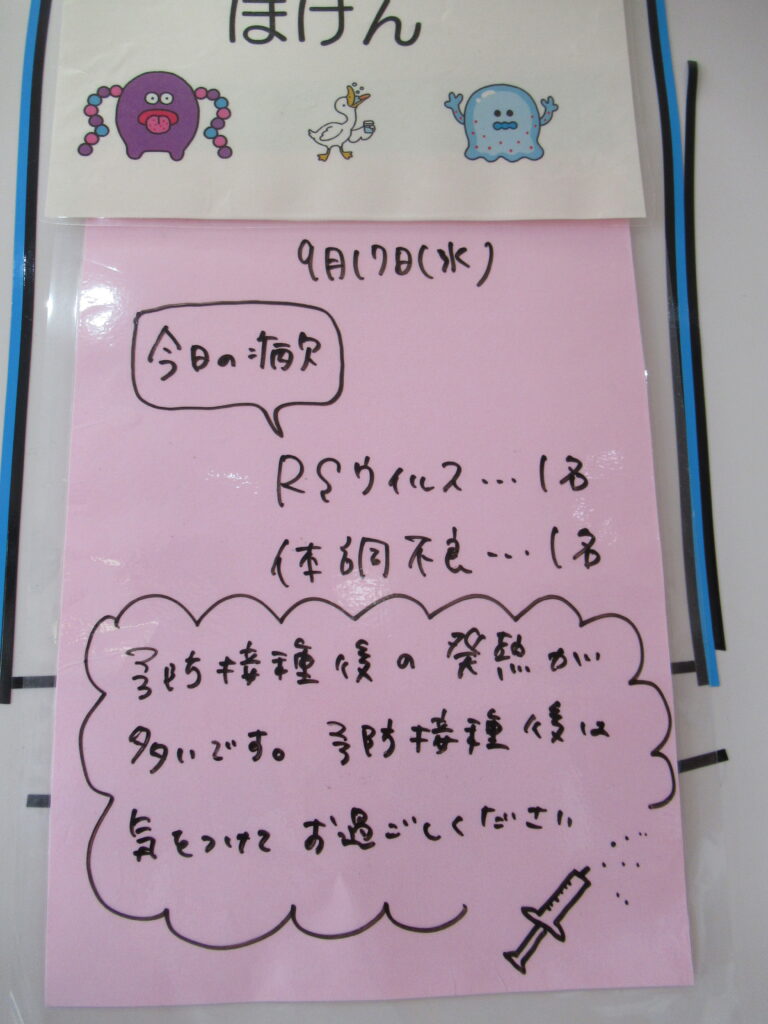 ほけん
9月17日(水)
今日の病欠
RSウイルス…1名
体調不良…1名
予防接種後の発熱が
多いです。予防接種後は
気をつけてお過ごしください